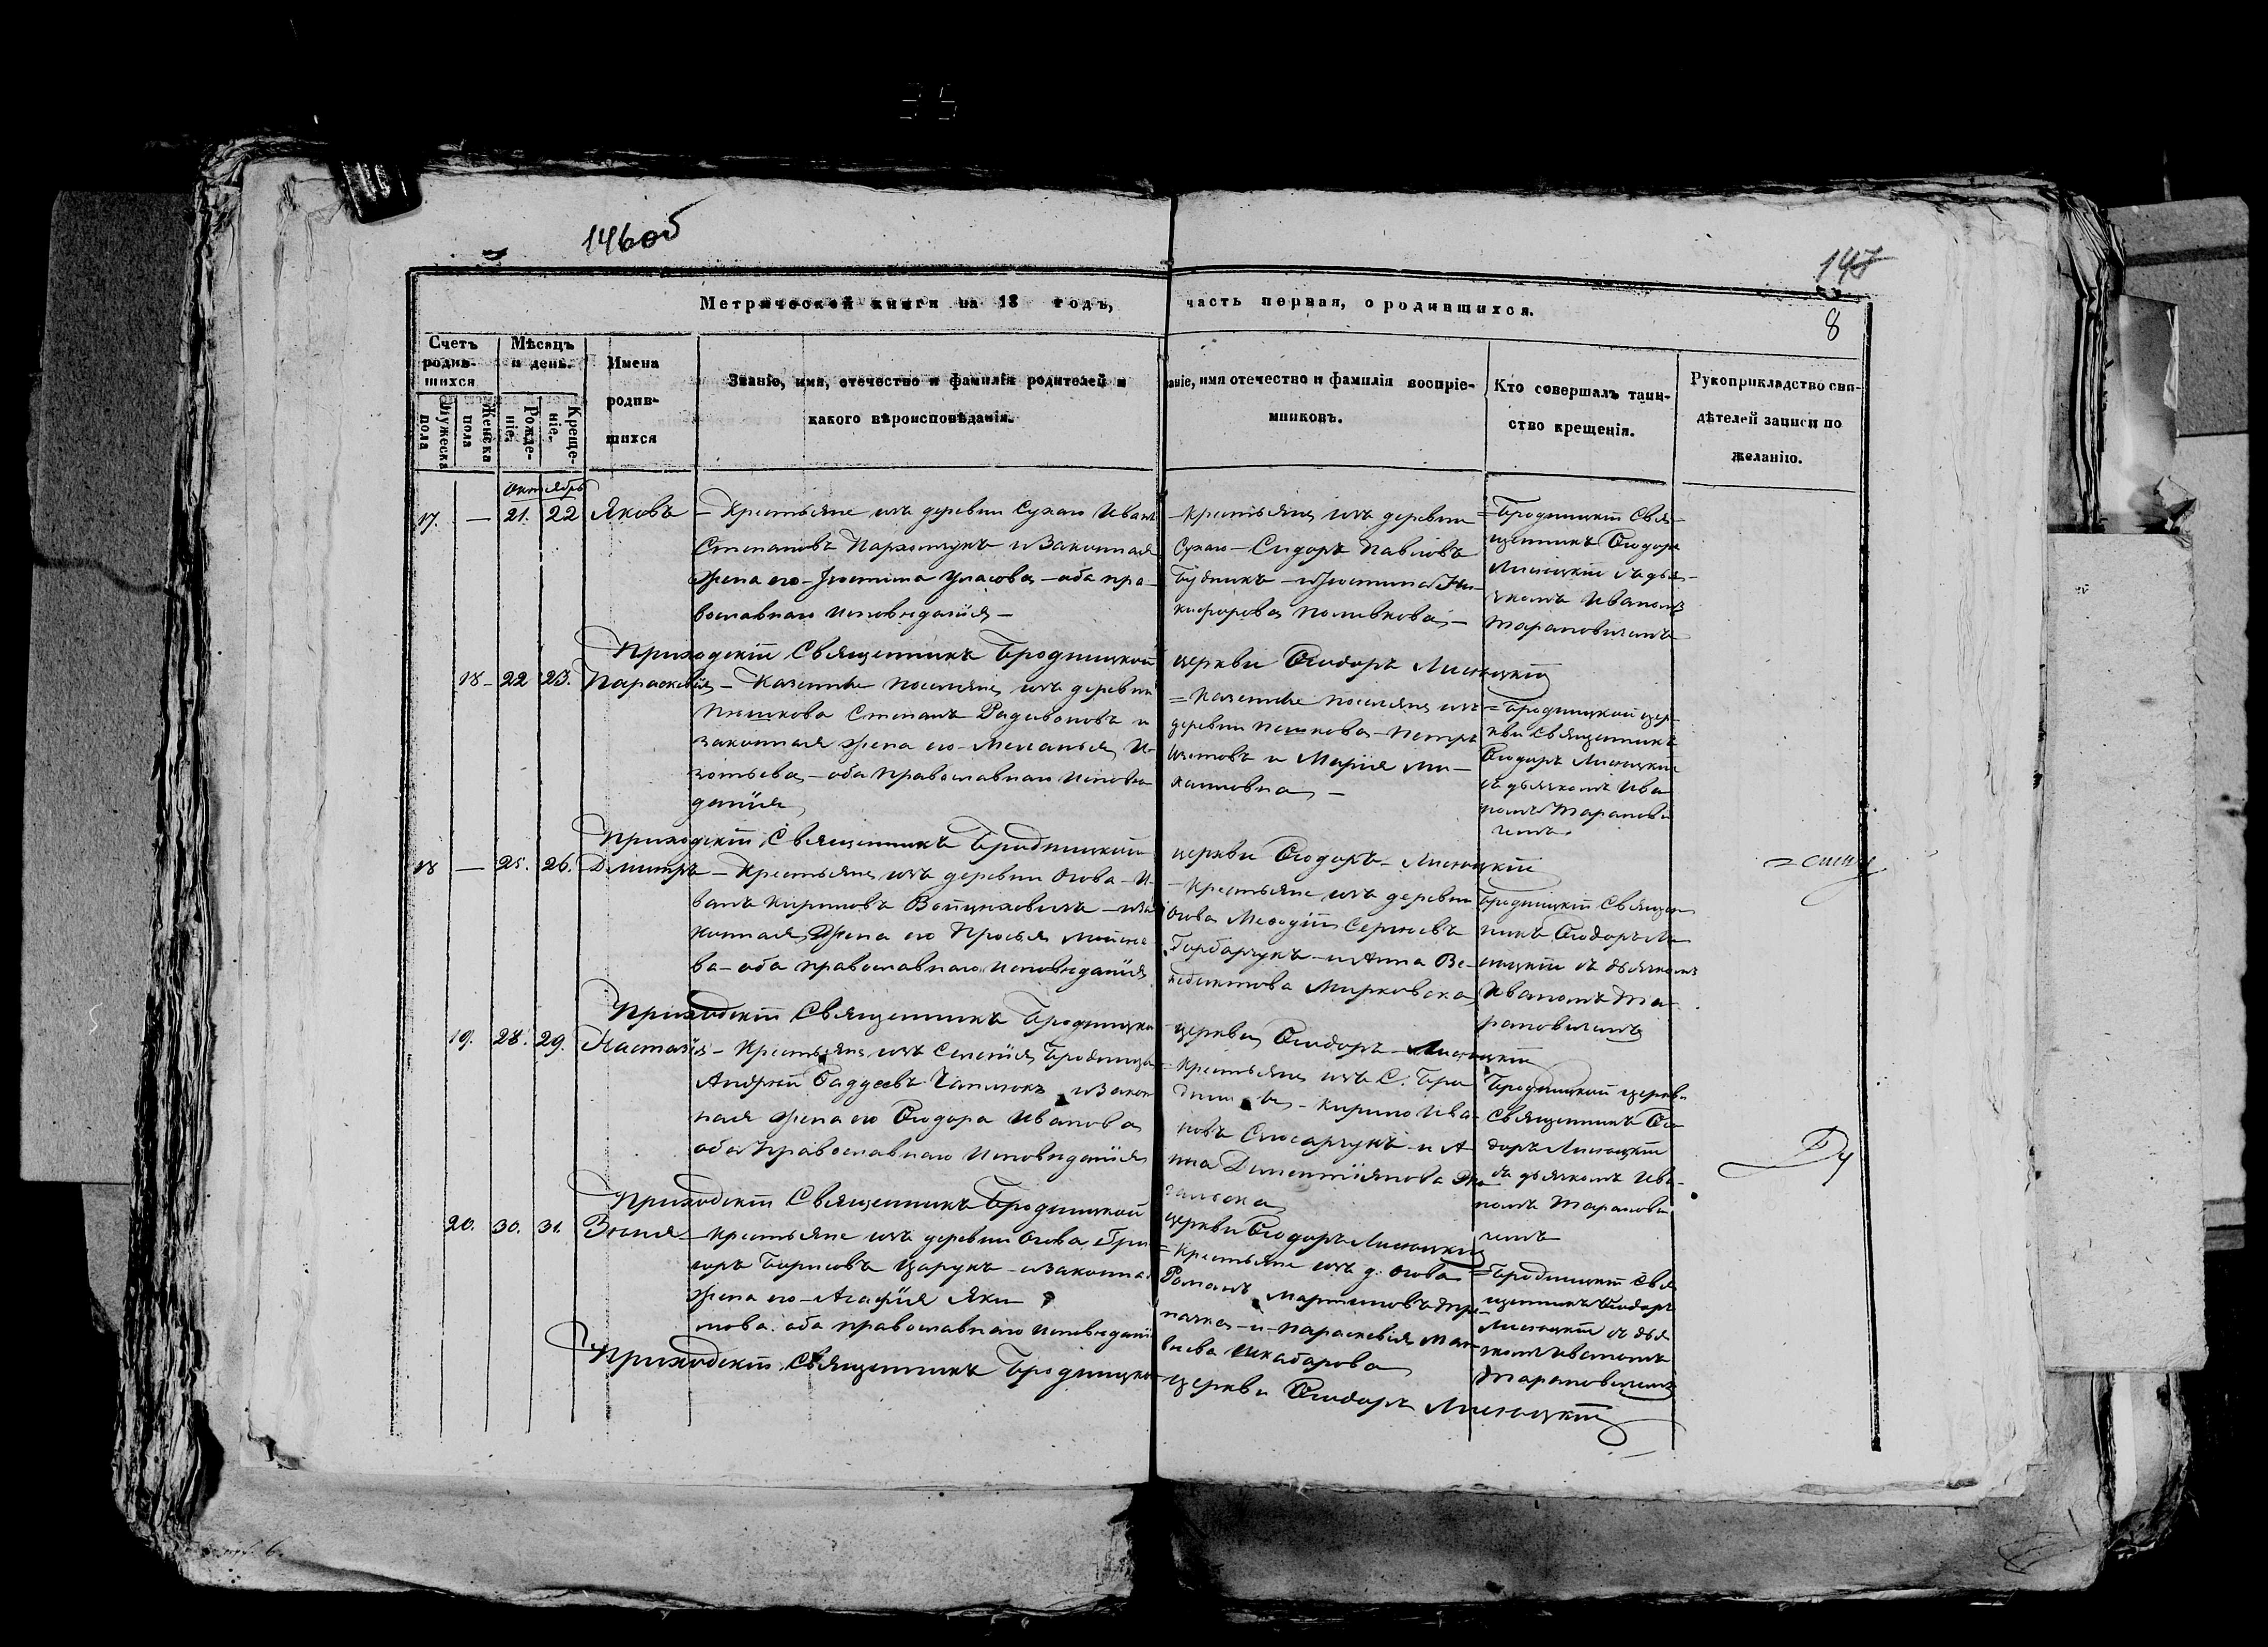 146об
147
8
Метрической книги на 18 годъ, часть первая, о родившихся.
Счетъ родив-шихся
Мужеска пола
Женска пола
Мѣсяцъ и день.
Рожде-ніе.
Креще-ніе.
Имена родив-шихся
Званіе, имя, отечество и фамилія родителей и какого вѣроисповѣданія.
званіе, имя отечество и фамилія воспріе-мниковъ.
Кто совершалъ таин-ство крещенія.
Рукоприкладство сви-дѣтелей записи по желанію.
Октябрь
17. — 21. 22 Яковъ
— Крестьяне изъ деревни Сухаго Иванъ
Степановъ Пархомчукъ и Законная
Жена его — Іустина Уласова — оба пра-
вославнаго исповѣданія —
— Крестьяне изъ деревни
Сухаго — Сидоръ Павловъ
Будникъ — и Іустина Ни-
кифорова
Бродницкій Свя-
щенникъ Ѳеодоръ
Лисицкій съ дья-
чкомъ Иваномъ
Тарановичемъ
Приходскій Священникъ Бродницкой церкви Ѳеодоръ Лисицкій
18 — 22 23. Параскевія
— Казенные поселяне изъ деревни
Пешкова Степанъ Радивоновъ и
законная жена его — Меланья И-
зотьева — оба православнаго исповѣ-
данія
= Казенные поселяне изъ
деревни Пешкова — Петръ
и Марія Ми-
хаиловна —
= Бродницкой цер-
кви Священникъ
Ѳеодоръ Лисицкій
съ дьячкомъ Ива
номъ Таранови
чемъ.
Приходскій Священникъ Бродницкой церкви Ѳеодоръ Лисицкій
18 — 25. 26. Дмитръ
— Крестьяне изъ деревни Огова — И-
ванъ Кириловъ Войцеховичъ — и за
конная Жена его Просья Моисее-
ва — оба православнаго исповѣданія
— Крестьяне изъ деревни
Огова Меѳодій Сергѣевъ
Горбачукъ — и Анна Ве-
недиктова Мирковска
Бродницкій Священ
никъ Ѳеодоръ Ли
сицкій съ дьячкомъ
Иваномъ Та-
рановичемъ
Приходскій Священникъ Бродницкой церкви Ѳеодоръ Лисицкій
19. 28. 29. Настазія
— Крестьяне изъ Селенія Бродница
Андрей Ѳаддеевъ и Закон
ная жена его Ѳеодора Иванова
оба Православнаго Исповѣданія
= Крестьяне изъ С. Бро
дницы — Кирило Ива-
новъ Слюсарчукъ и А-
нна
Бродницкой церкви
Священникъ Ѳео
доръ Лисицкій
съ дьячкомъ Ива-
номъ Таранови
чемъ
Приходскій Священникъ Бродницкой церкви Ѳеодоръ Лисицкій
20. 30. 31.
— Крестьяне изъ деревни Огова Гри-
горъ Борисовъ Царукъ — и законна
жена его — Агафія Яки-
мова. оба православнаго исповѣданія
= Крестьяне изъ д. Огова
Романъ Мартиновъ
и Параскевія Мат
вѣева Шкабарова
= Бродницкій Свя
щенникъ Ѳеодоръ
Лисицкій съ дья
чкомъ Иваномъ
Тарановичемъ
Приходскій Священникъ Бродницкой церкви Ѳеодоръ Лисицкій